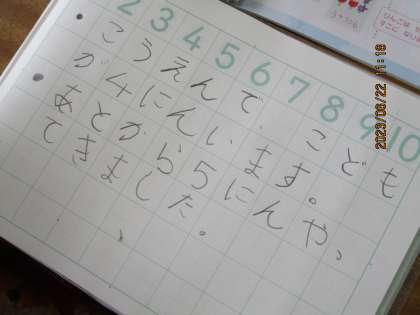 2 3 4 5 6 7 8 9 10
こうえんで、こども
が4にんいます。
あとから5にんや、
てきました。
2023/06/22 11:18